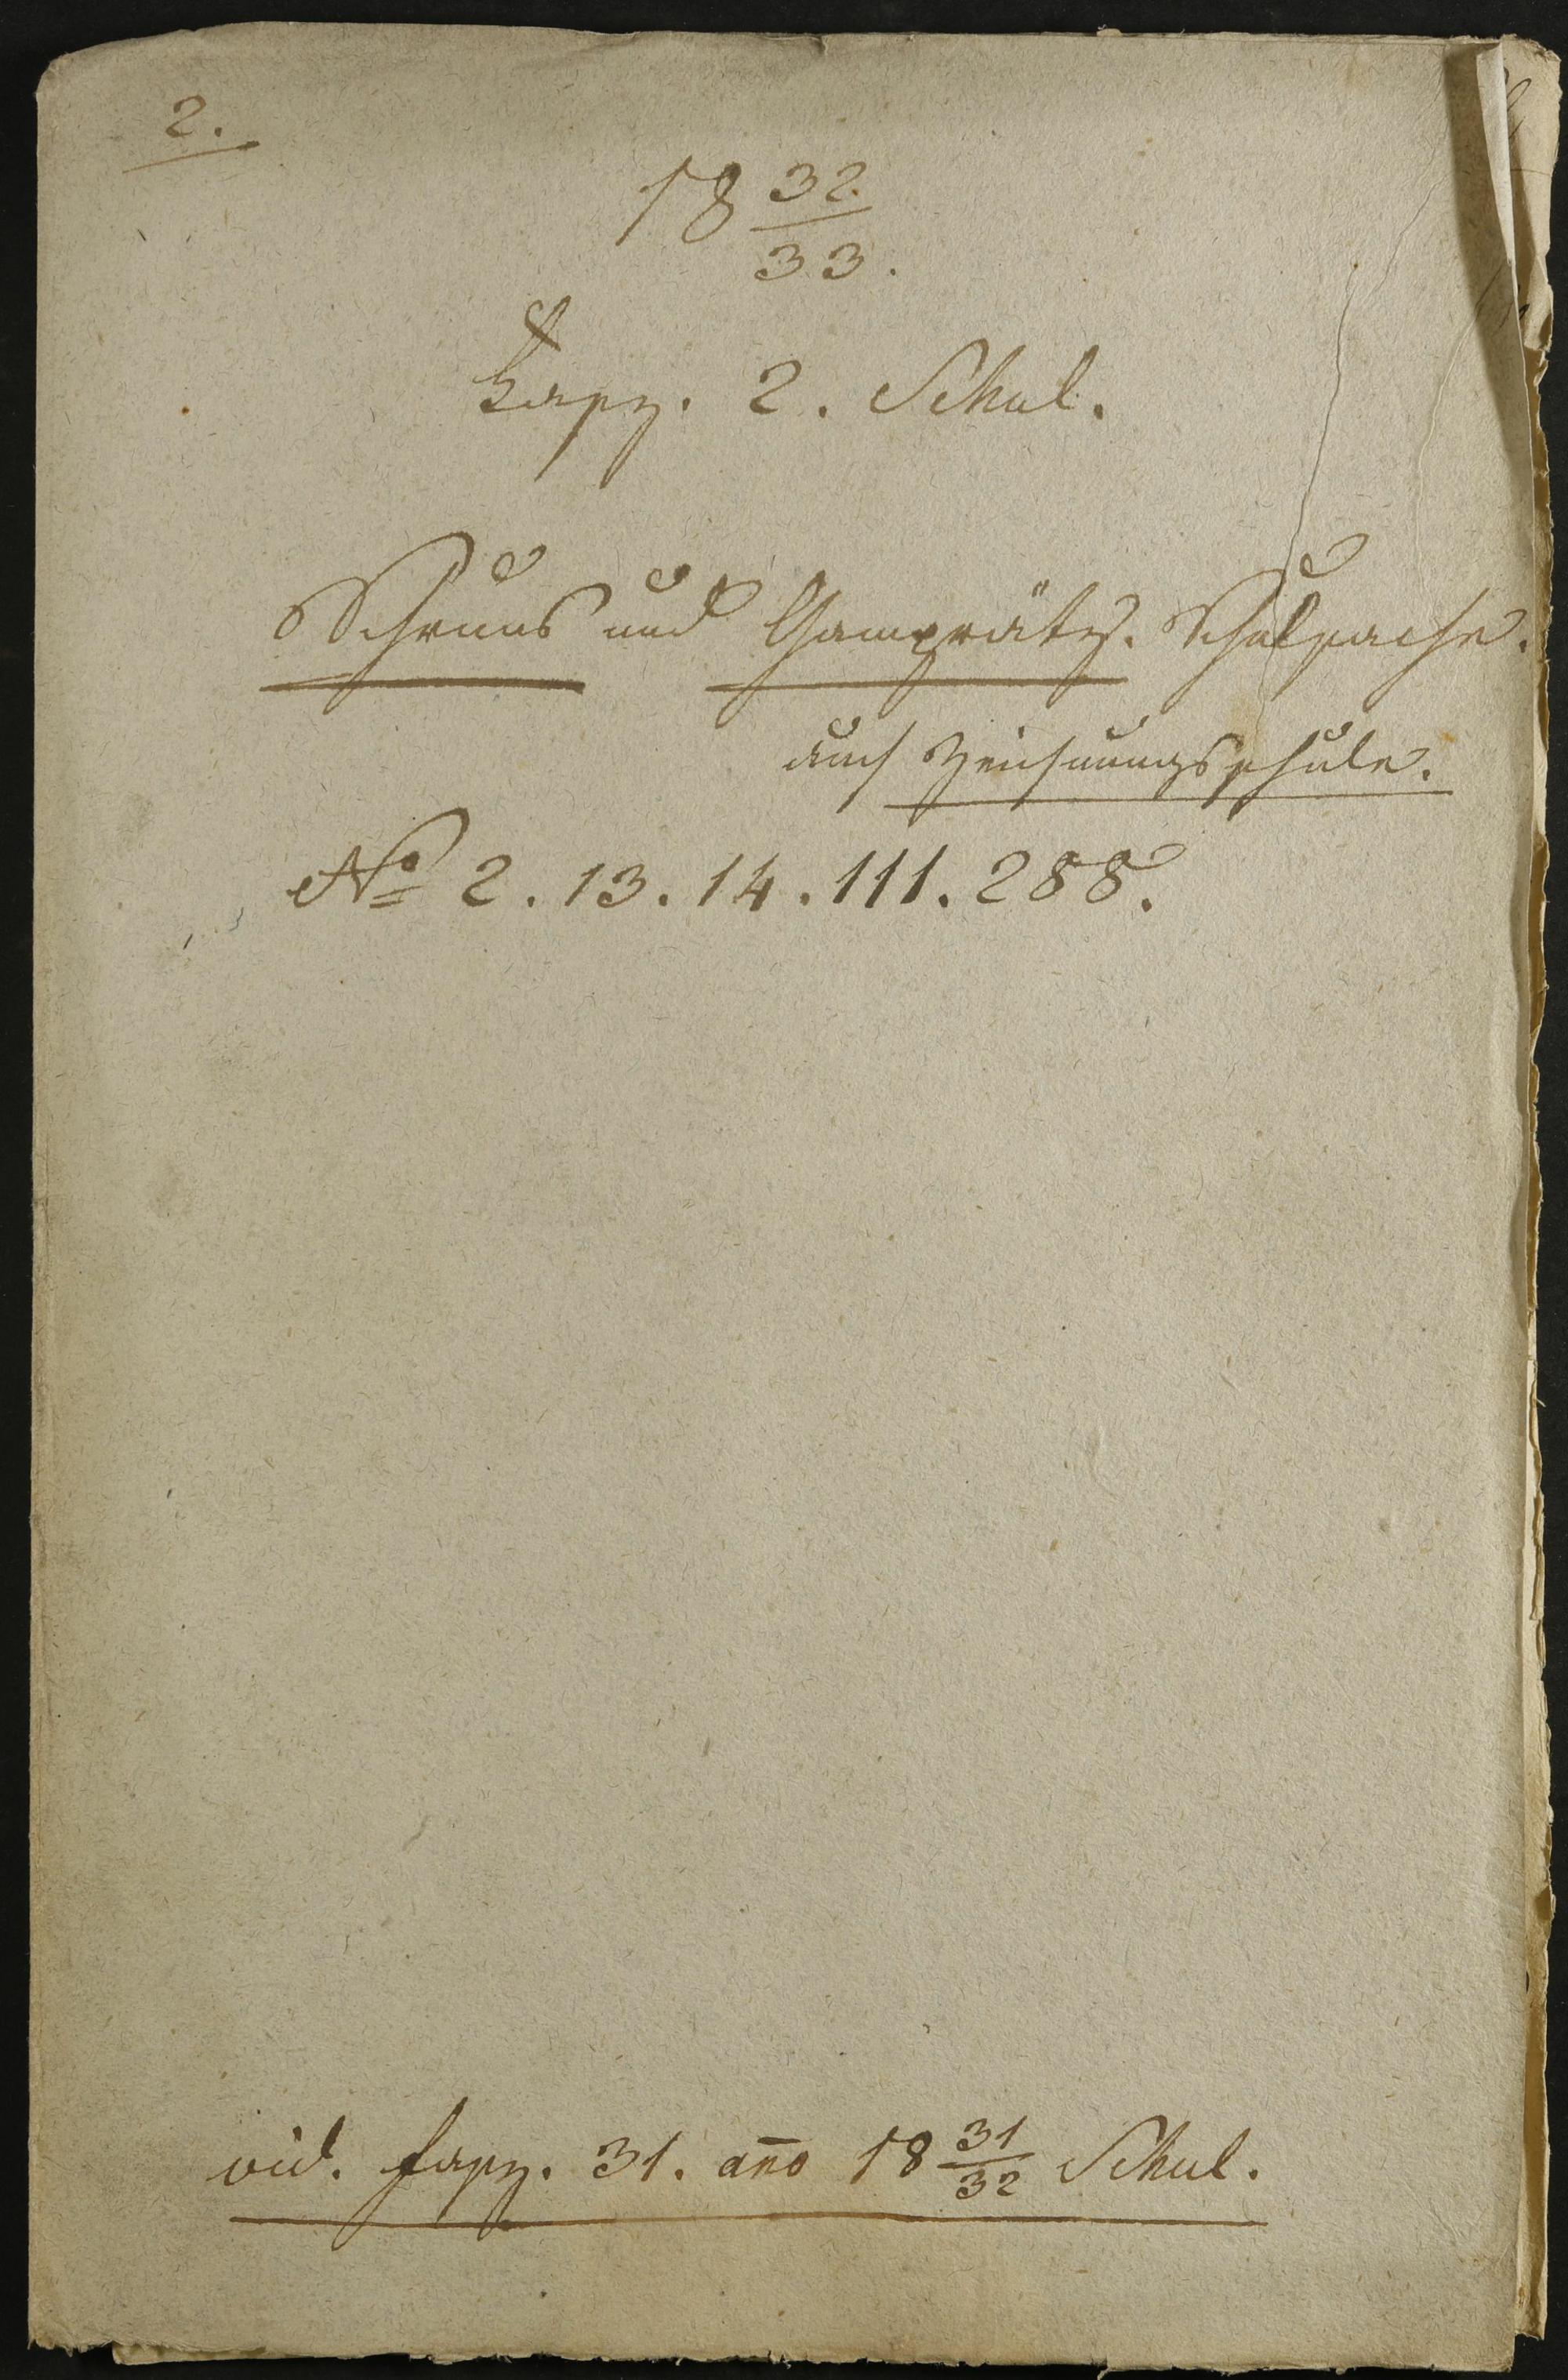 2.
18 32/33.
Fasz. 2. Schul.
Schruns und Gamprätz. Schulsache.
auch Zeichnungsschule.
No 2. 13. 14. 111. 288.
vid. fasz. 31. año 18 31/32 Schul.